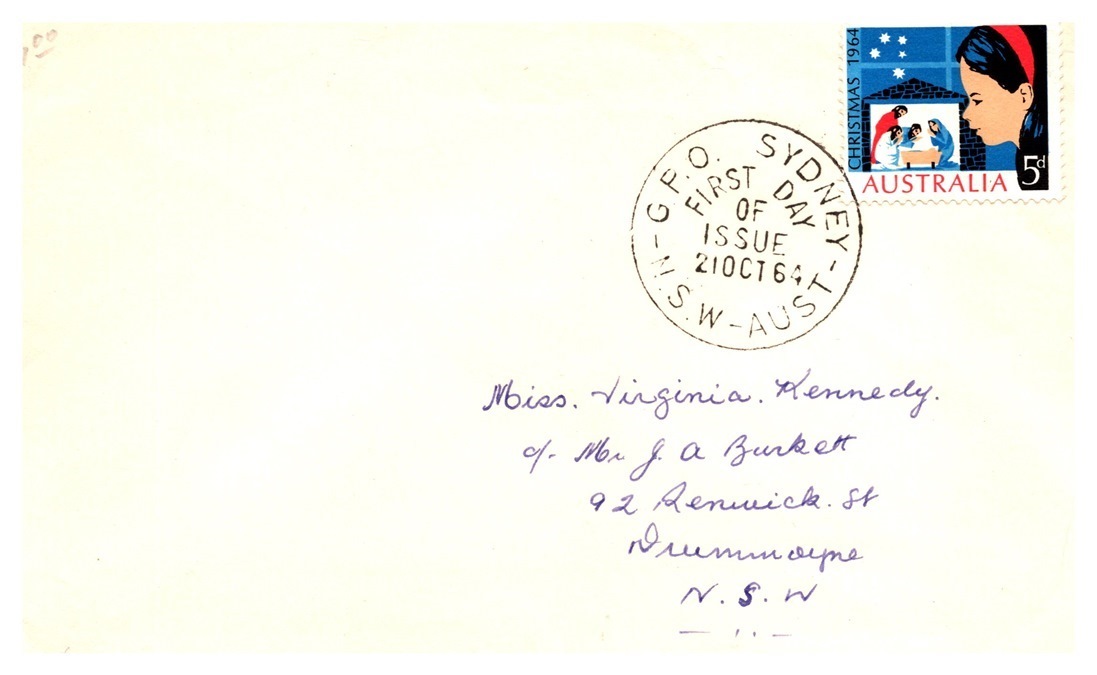 .00
CHRISTMAS 1964
5d
AUSTRALIA
G.P.O. SYDNEY
FIRST DAY
OF
ISSUE
21OCT64
N.S.W-AUST
Miss. Virginia. Kennedy.
c/- Mr J. A Burkett
92 Renwick. St
Drummoyne
N. S. W